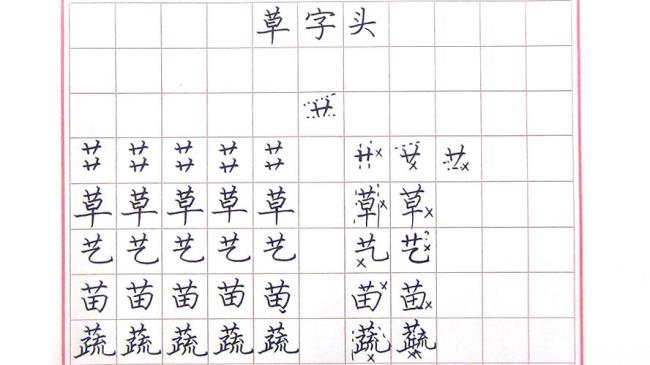 草字头
艹
艹 艹 艹 艹 艹 艹 艹 艹
艹 艹 艹 艹 艹
草 草 草 草 草 草 草
艺 艺 艺 艺 艺 艺 艺
苗 苗 苗 苗 苗 苗 苗
蔬 蔬 蔬 蔬 蔬 蔬 蔬